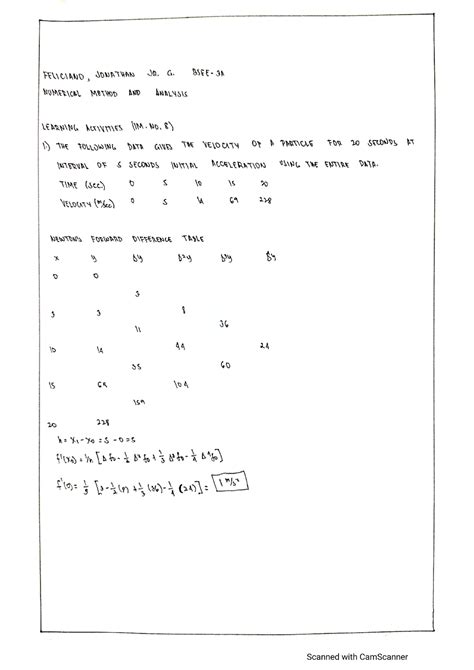 FELICIANO, JONATHAN JO. G. BSEE-3A
NUMERICAL METHOD AND ANALYSIS
LEARNING ACTIVITIES (IM. NO. 8)
1) THE FOLLOWING DATA GIVES THE VELOCITY OF A PARTICLE FOR 20 SECONDS AT
INTERVAL OF 5 SECONDS INITIAL ACCELERATION USING THE ENTIRE DATA.
TIME (SEC) 0 5 10 15 20
VELOCITY (m/sec) 0 3 14 69 228
NEWTONS FORWARD DIFFERENCE TABLE
x y Δy Δ²y Δ³y
0 0
3
3 8
11 36
10 14 44 24
55 60
15 69 104
159
20 228
h = x₁ - x₀ = 5 - 0 = 5
f'(x₀) = 1/h [Δf₀ - 1/2 Δ²f₀ + 1/3 Δ³f₀ - 1/4 Δ⁴f₀]
f'(0) = 1/5 [3 - 1/2 (8) + 1/3 (36) - 1/4 (24)] = 1 m/s²
Scanned with CamScanner